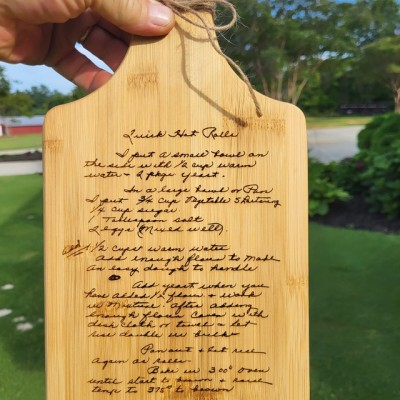 Quick Hot Rolls
I put a small bowl on
the side with 1/2 cup warm
water - 2 pkgs yeast.
In a large bowl or Pan
I put 3/4 cup Vegetable Shortening
1/4 cup sugar
1 Tablespoon salt
2 eggs (Mixed well).
1 1/2 cups warm water
Add enough flour to make
an easy dough to handle
Add yeast when you
have added 1/2 flour + work
in Mixture. After adding
enough flour Cover with
dish cloth or towel + let
rise double in bulk
Pan out + let rise
again as rolls
Bake in 300° oven
until start to brown + raise
temp to 375° to brown